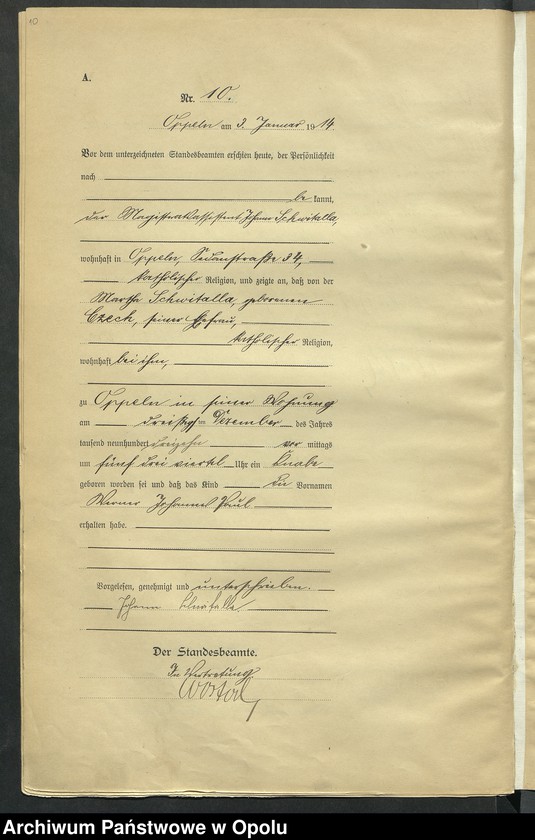 10
A.
Nr. 10.
Oppeln am 3. Januar 1914.
Vor dem unterzeichneten Standesbeamten erschien heute, der Persönlichkeit
nach
be kannt,
der Magistratsassistent Johann Schwitalla,
wohnhaft in Oppeln, Sedanstraße 34,
katholischer Religion, und zeigte an, daß von der
Martha Schwitalla, geborenen
Czech, seiner Ehefrau,
katholischer Religion,
wohnhaft bei ihm,
zu Oppeln in seiner Wohnung
am dreißigsten Dezember des Jahres
tausend neunhundert dreizehn vor mittags
um fünf drei viertel Uhr ein Knabe
geboren worden sei und daß das Kind die Vornamen
Werner Johannes Paul
erhalten habe.
Vorgelesen, genehmigt und unterschrieben.
Johann Schwitalla
Der Standesbeamte.
In Vertretung
Archiwum Państwowe w Opolu